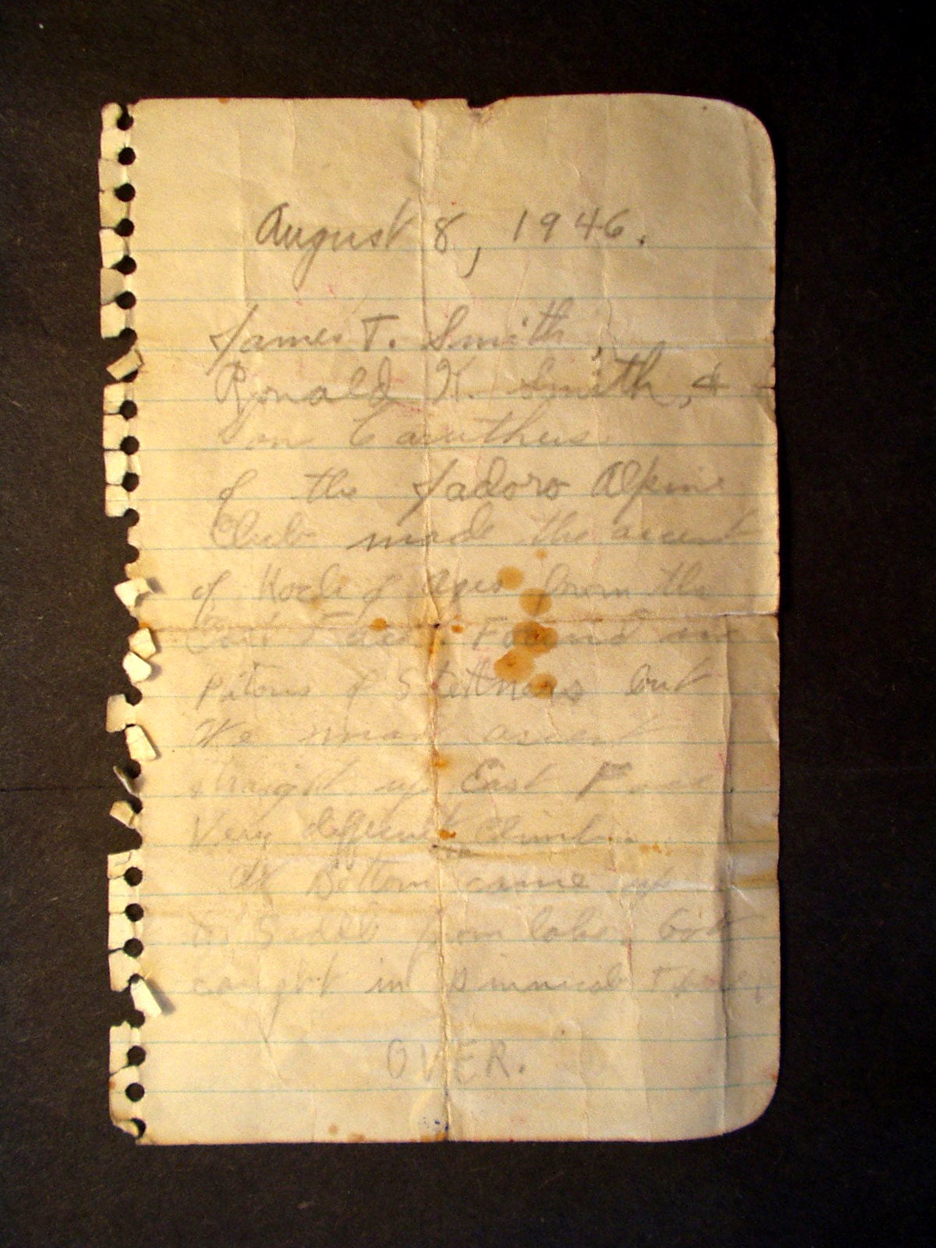 August 8, 1946.
James T. Smith,
Ronald K. Smith, &
on Caruthers.
of the Jadoro Alpine
Club made the ascent
of Rock of Ages from the
East Face. Found
Pitons of Stettners but
We made ascent
straight up East Face
Very difficult Climbing.
At Bottom came up
to Saddle from lake. Got
caught in
OVER.